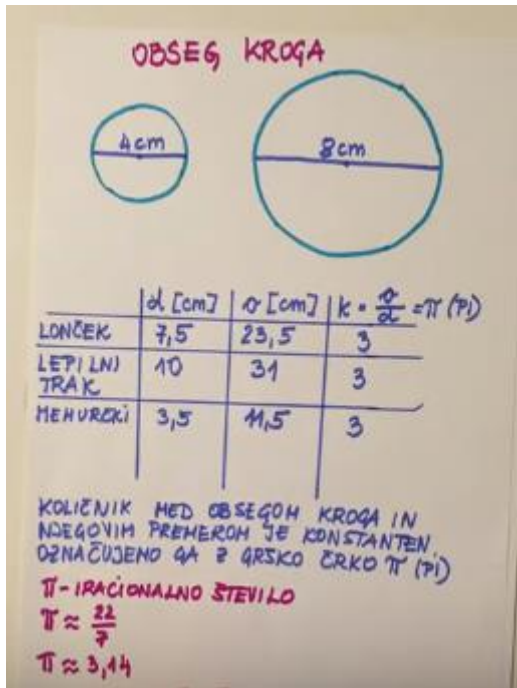 OBSEG KROGA
4cm
8cm
d [cm] o [cm] k = o/d = π (PI)
LONČEK 7,5 23,5 3
LEPILNI TRAK 10 31 3
MEHURČKI 3,5 11,5 3
KOLIČNIK MED OBSEGOM KROGA IN
NJEGOVIM PREMEROM JE KONSTANTEN,
OZNAČUJEMO GA Z GRŠKO ČRKO π (PI)
π - IRACIONALNO ŠTEVILO
π ≈ 22/7
π ≈ 3,14